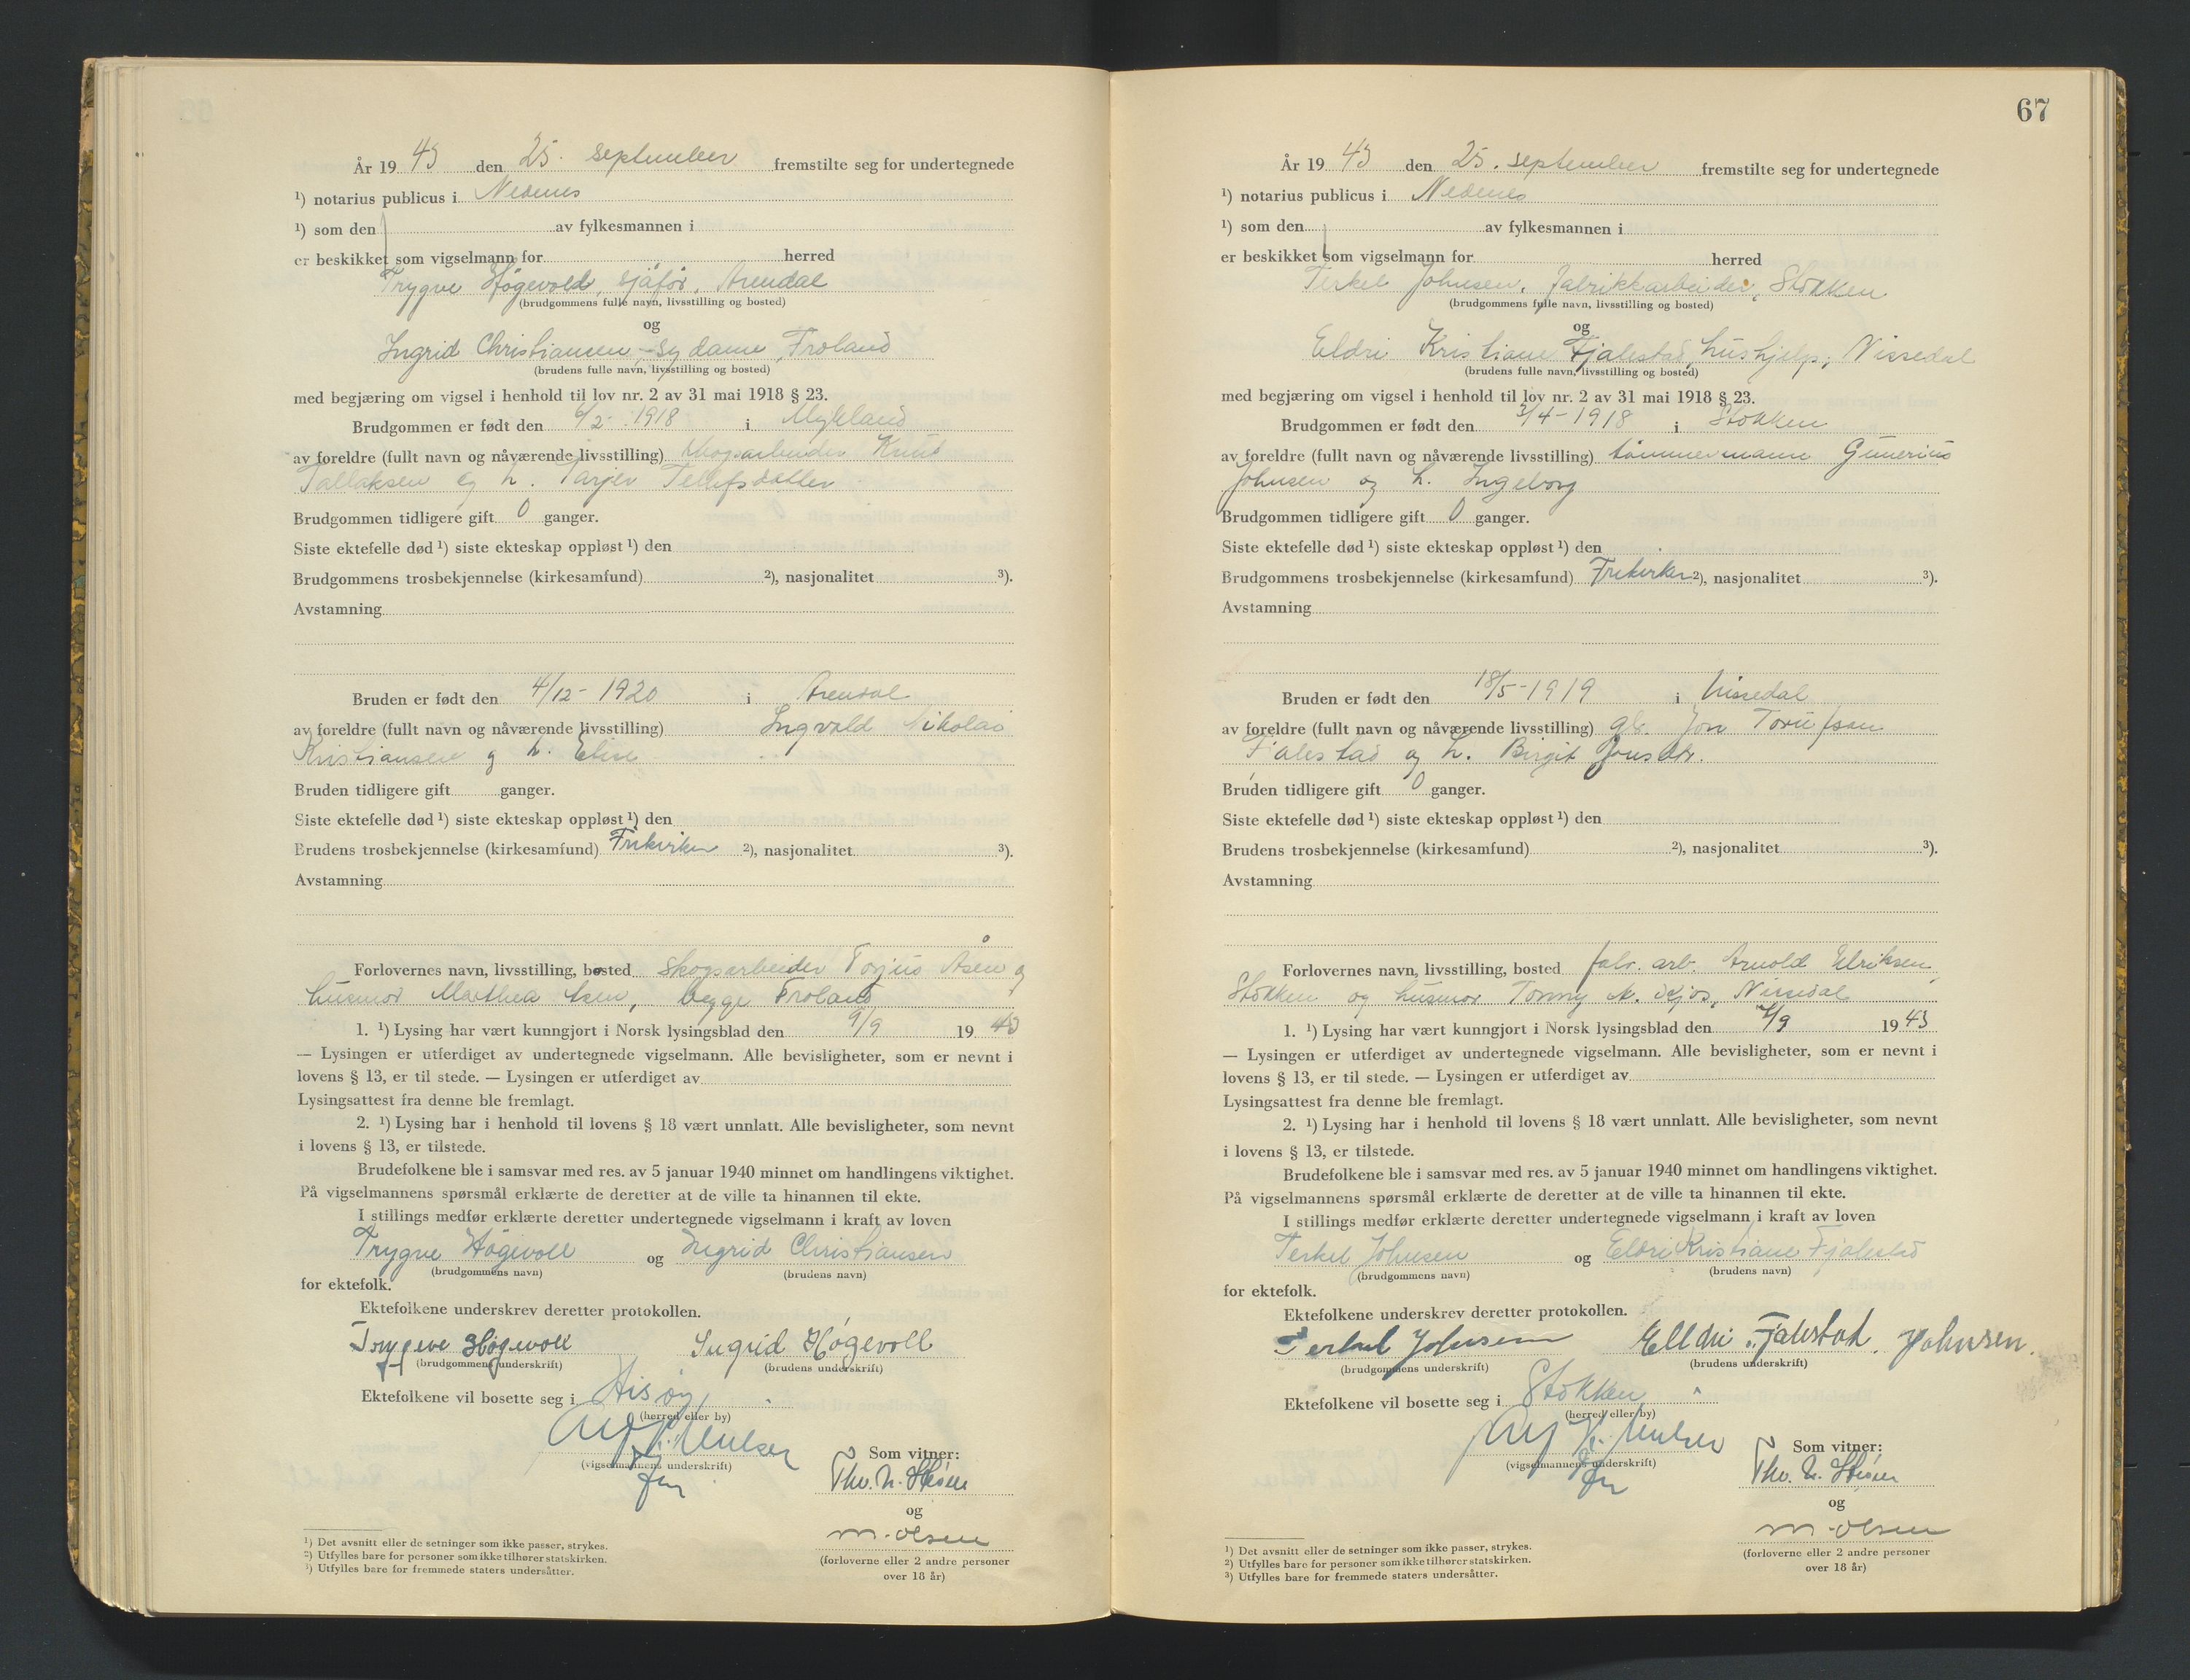 År 19 43 den 25. september fremstilte seg for undertegnede
¹) notarius publicus i Nedenes
¹) som den av fylkesmannen i
er beskikket som vigselmann for herred
Trygve Høgevold, sjåfør, Arendal
(brudgommens fulle navn, livsstilling og bosted)
og
Ingrid Christiansen, sydame, Froland
(brudens fulle navn, livsstilling og bosted)
med begjæring om vigsel i henhold til lov nr. 2 av 31 mai 1918 § 23.
Brudgommen er født den 6/2- 1918 i Mykland
av foreldre (fullt navn og nåværende livsstilling) skogsarbeider Knut
Tallaksen og h. Tarjer Tellefsdatter
Brudgommen tidligere gift 0 ganger.
Siste ektefelle død ¹) siste ekteskap oppløst ¹) den
Brudgommens trosbekjennelse (kirkesamfund) ²), nasjonalitet ³).
Avstamning
Bruden er født den 4/12- 1920 i Arendal
av foreldre (fullt navn og nåværende livsstilling) Ingvald Nikolai
Kristiansen og h. Elise
Bruden tidligere gift ganger.
Siste ektefelle død ¹) siste ekteskap oppløst ¹) den
Brudens trosbekjennelse (kirkesamfund) Frikirken ²), nasjonalitet ³).
Avstamning
Forlovernes navn, livsstilling, bosted Skogsarbeider Torjus Åsen og
husmor Marthea Åsen, begge Froland
1. ¹) Lysing har vært kunngjort i Norsk lysingsblad den 9/9 19 43
— Lysingen er utferdiget av undertegnede vigselmann. Alle bevisligheter, som er nevnt i
lovens § 13, er til stede. — Lysingen er utferdiget av
Lysingsattest fra denne ble fremlagt.
2. ¹) Lysing har i henhold til lovens § 18 vært unnlatt. Alle bevisligheter, som nevnt
i lovens § 13, er tilstede.
Brudefolkene ble i samsvar med res. av 5 januar 1940 minnet om handlingens viktighet.
På vigselmannens spørsmål erklærte de deretter at de ville ta hinannen til ekte.
I stillings medfør erklærte deretter undertegnede vigselmann i kraft av loven
Trygve Høgevoll og Ingrid Christiansen
(brudgommens navn) (brudens navn)
for ektefolk.
Ektefolkene underskrev deretter protokollen.
Trygve Høgevoll Ingrid Høgevoll
(brudgommens underskrift) (brudens underskrift)
Ektefolkene vil bosette seg i Hisøy
(herred eller by)
(vigselmannens underskrift)
Som vitner:
Thv. N.
og
M. Olsen
(forloverne eller 2 andre personer
over 18 år)
¹) Det avsnitt eller de setninger som ikke passer, strykes.
²) Utfylles bare for personer som ikke tilhører statskirken.
³) Utfylles bare for fremmede staters undersåtter.
67
År 19 43 den 25. september fremstilte seg for undertegnede
¹) notarius publicus i Nedenes
¹) som den av fylkesmannen i
er beskikket som vigselmann for herred
Terkel Johnsen, Fabrikkarbeider, Stokken
(brudgommens fulle navn, livsstilling og bosted)
og
Eldri Kristiane Fjalestad, hushjelp, Nissedal
(brudens fulle navn, livsstilling og bosted)
med begjæring om vigsel i henhold til lov nr. 2 av 31 mai 1918 § 23.
Brudgommen er født den 3/4- 1918 i Stokken
av foreldre (fullt navn og nåværende livsstilling) tømmermann Gunerius
Johnsen og h. Ingeborg
Brudgommen tidligere gift 0 ganger.
Siste ektefelle død ¹) siste ekteskap oppløst ¹) den
Brudgommens trosbekjennelse (kirkesamfund) Frikirken ²), nasjonalitet ³).
Avstamning
Bruden er født den 18/5- 1919 i Nissedal
av foreldre (fullt navn og nåværende livsstilling) gbr. Jon
Fjalestad og h. Birgit Jonsdtr.
Bruden tidligere gift 0 ganger.
Siste ektefelle død ¹) siste ekteskap oppløst ¹) den
Brudens trosbekjennelse (kirkesamfund) ²), nasjonalitet ³).
Avstamning
Forlovernes navn, livsstilling, bosted fabr. arb. Arnold Eriksen,
Stokken og husmor Tonny A. Kjos, Nissedal
1. ¹) Lysing har vært kunngjort i Norsk lysingsblad den /9 19 43
— Lysingen er utferdiget av undertegnede vigselmann. Alle bevisligheter, som er nevnt i
lovens § 13, er til stede. — Lysingen er utferdiget av
Lysingsattest fra denne ble fremlagt.
2. ¹) Lysing har i henhold til lovens § 18 vært unnlatt. Alle bevisligheter, som nevnt
i lovens § 13, er tilstede.
Brudefolkene ble i samsvar med res. av 5 januar 1940 minnet om handlingens viktighet.
På vigselmannens spørsmål erklærte de deretter at de ville ta hinannen til ekte.
I stillings medfør erklærte deretter undertegnede vigselmann i kraft av loven
Terkel Johnsen og Eldri Kristiane Fjalestad
(brudgommens navn) (brudens navn)
for ektefolk.
Ektefolkene underskrev deretter protokollen.
Terkel Johnsen Elldri Fjalestad. Johnsen.
(brudgommens underskrift) (brudens underskrift)
Ektefolkene vil bosette seg i Stokken
(herred eller by)
(vigselmannens underskrift)
Som vitner:
Thv. N.
og
M. Olsen
(forloverne eller 2 andre personer
over 18 år)
¹) Det avsnitt eller de setninger som ikke passer, strykes.
²) Utfylles bare for personer som ikke tilhører statskirken.
³) Utfylles bare for fremmede staters undersåtter.